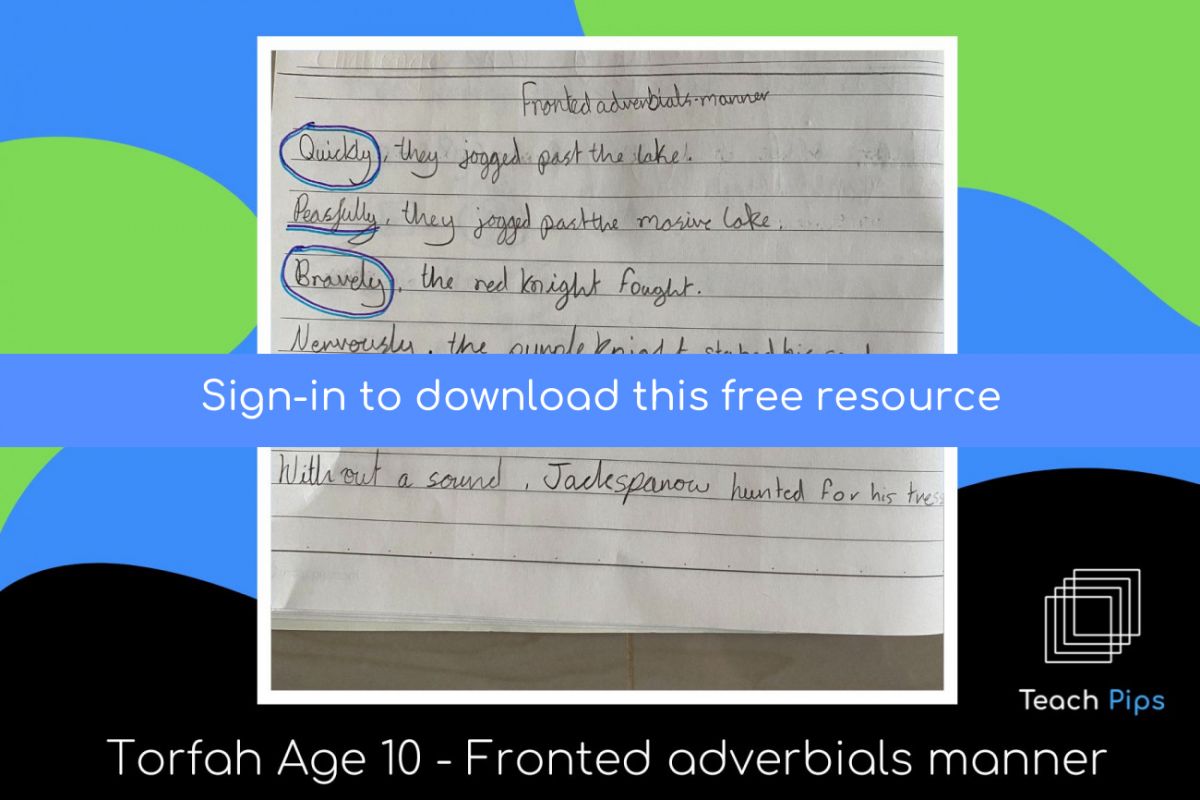 Fronted adverbials-manner
Quickly, they jogged past the lake.
Peasfully, they jogged past the masive lake.
Bravely, the red knight fought.
Nervously, the purple knight
Sign-in to download this free resource
Without a sound, Jacksparrow hunted for his tres
Teach Pips
Torfah Age 10 - Fronted adverbials manner